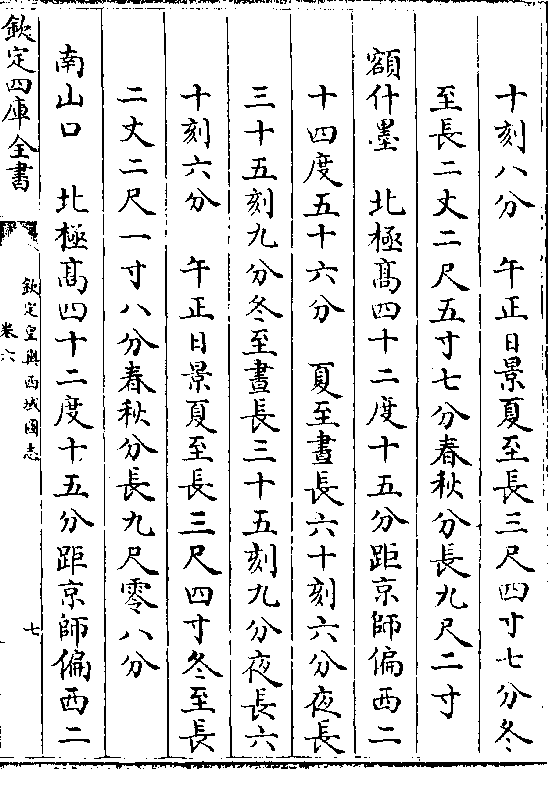 十刻八分　午正日景夏至長三尺四寸七分冬
至長二丈二尺五寸七分春秋分長九尺二寸
額什墨　北極髙四十二度十五分距京師偏西二
十四度五十六分　夏至晝長六十刻六分夜長
三十五刻九分冬至晝長三十五刻九分夜長六
十刻六分　午正日景夏至長三尺四寸冬至長
二丈二尺一寸八分春秋分長九尺零八分
南山口　北極髙四十二度十五分距京師偏西二
欽定四庫全書
欽定皇輿西域圖志
卷六
七